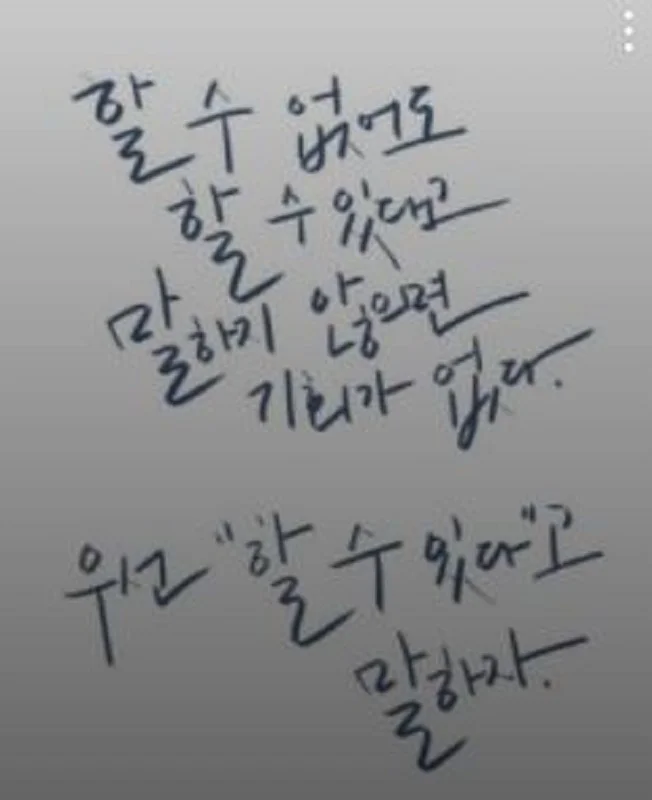 할 수 없어도
할 수 있다고
말하지 않으면
기회가 없다.
우선 "할 수 있다"고
말하자.